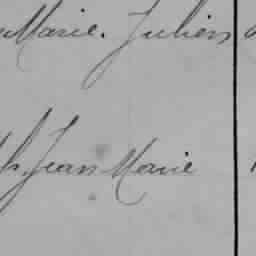 Marie. Julien
h. Jean Marie